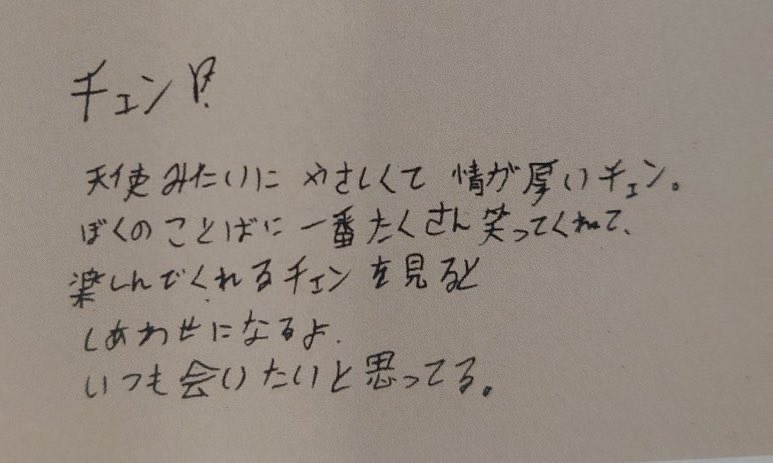 チェン!
天使みたいに やさしくて 情が厚いチェン。
ぼくのことばに一番たくさん笑ってくれて、
楽しんでくれるチェンを見ると
しあわせになるよ.
いつも会いたいと思ってる。